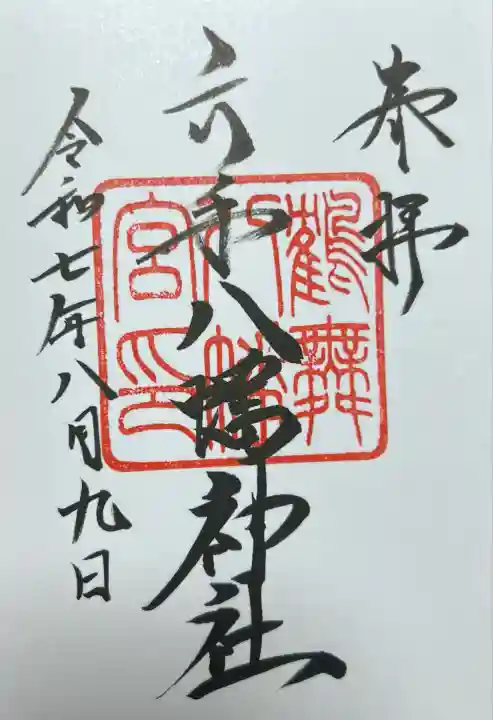 奉拝
六手八幡神社
鶴舞
八幡
宮印
令和七年八月九日